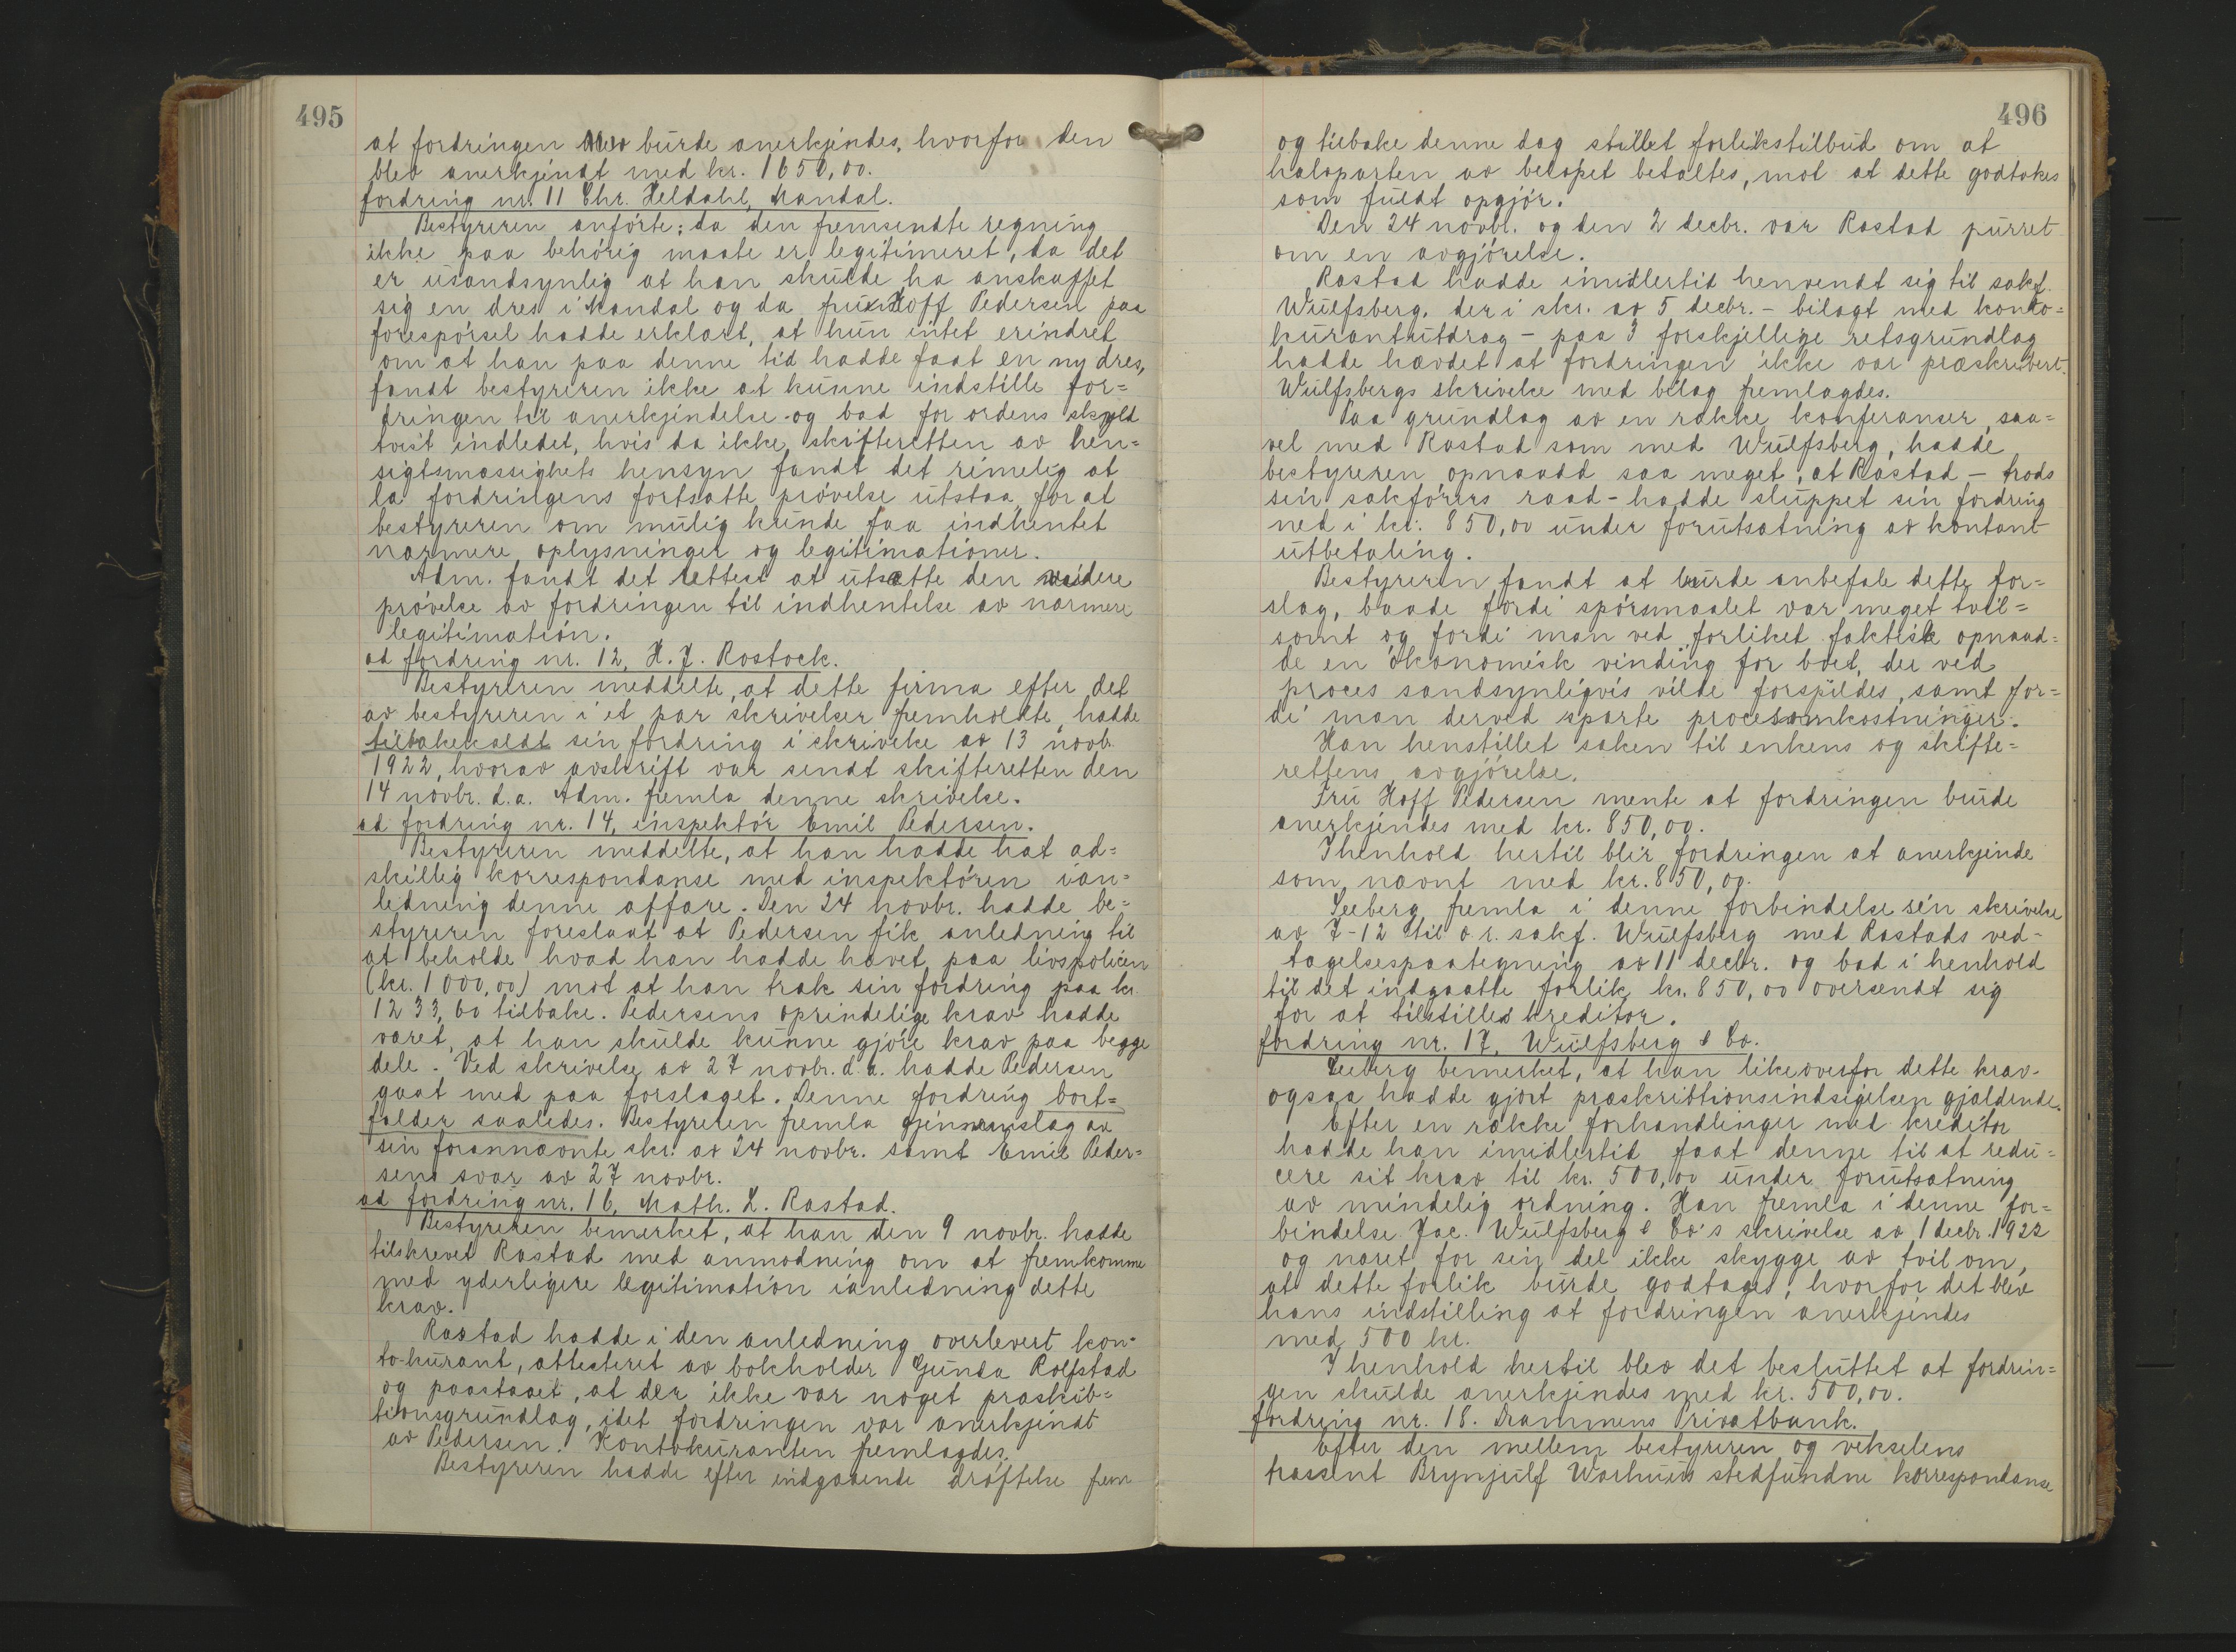 495
at fordringen burde anerkjendes, hvorfor den
blev anerkjendt med kr. 1650,00.
fordring nr. 11 Chr. Heldahl, Mandal.
Bestyreren anførte; da den fremsendte regning
ikke paa behørig maate er legitimeret, da det
er usandsynlig at han skulde ha anskaffet
sig en dres i Mandal og da fru Hoff Pedersen paa
forespørsel hadde erklært, at hun intet erindret
om at han paa denne tid hadde faat en ny dres,
fandt bestyreren ikke at kunne indstille for=
dringen til anerkjendelse og bad for ordens skyld
tvist indledet, hvis da ikke skifteretten av hen=
sigtsmæssighets hensyn fandt det rimelig at
la fordringens fortsatte prøvelse utstaa, for at
bestyreren om mulig kunde faa indhentet
nærmere oplysninger og legitimationer.
Adm. fandt det rettest at utsætte den videre
prøvelse av fordringen til indhentelse av nærmere
legitimation.
ad fordring nr. 12, H. J. Rostock.
Bestyreren meddelte, at dette firma efter det
av bestyreren i et par skrivelser fremholdte hadde
tilbakekaldt sin fordring i skrivelse av 13 novb.
1922, hvorav avskrift var sendt skifteretten den
14 novbr. d.a. Adm. fremla denne skrivelse.
ad fordring nr. 14, inspektør Emil Pedersen.
Bestyreren meddelte, at han hadde hat ad=
skillig korrespondanse med inspektøren ian=
ledning denne affære. Den 24 novbr. hadde be=
styreren foreslaat at Pedersen fik anledning til
at beholde hvad han hadde hævet paa livspolicen
(kr. 1000,00) mot at han trak sin fordring paa kr.
1233,60 tilbake. Pedersens oprindelige krav hadde
været, at han skulde kunne gjøre krav paa begge
dele. Ved skrivelse av 27 novbr. d.a. hadde Pedersen
gaat med paa forslaget. Denne fordring bort=
falder saaledes. Bestyreren fremla gjennemslag av
sin forannævnte skr. av 24 novbr. samt Emil Peder=
sens svar av 27 novbr.
ad fordring nr. 16, Math. L. Rastad.
Bestyreren bemerket, at han den 9 novbr. hadde
tilskrevet Rastad med anmodning om at fremkomme
med yderligere legitimation ianledning dette
krav.
Rastad hadde i den anledning overlevert kon=
to-kurant, attesteret av bokholder Gunda Rolfstad
og paastaaet, at der ikke var noget præskrib=
tionsgrundlag, idet fordringen var anerkjendt
av Pedersen. Kontokuranten fremlagdes.
Bestyreren hadde efter indgaaende drøftelse frem
496
og tilbake denne dag stillet forlikstilbud om at
halvparten av beløpet betaltes, mot at dette godtokes
som fuldt opgjør.
Den 24 novbr. og den 2 decbr. var Rastad purret
om en avgjørelse.
Rastad hadde imidlertid henvendt sig til sakf.
Wulfsberg, der i skr. av 5 decbr. - bilagt med konto=
kurantutdrag - paa 3 forskjellige retsgrundlag
hadde hævdet at fordringen ikke var præskribert.
Wulfsbergs skrivelse med bilag fremlagdes.
Paa grundlag av en række konferanser saa=
vel med Rastad som med Wulfsberg, hadde
bestyreren opnaadd saa meget, at Rastad - trods
sin sakførers raad - hadde sluppet sin fordring
ned i kr. 850,00 under forutsætning av kontant
utbetaling.
Bestyreren fandt at burde anbefale dette for=
slag, baade fordi spørsmaalet var meget tvil=
somt og fordi man ved forliket faktisk opnaad=
de en økonomisk vinding for boet, der ved
proces sandsynligvis vilde forspildes, samt for=
di man derved sparte procesomkostninger.
Han henstillet saken til enkens og skifte=
rettens avgjørelse.
Fru Hoff Pedersen mente at fordringen burde
anerkjendes med kr. 850,00.
I henhold hertil blir fordringen at anerkjende
som nævnt med kr. 850,00.
Seeberg fremla i denne forbindelse sin skrivelse
av 7-12 til o.r. sakf. Wulfsberg med Rastads ved=
tagelsespaategning av 11 decbr. og bad i henhold
til det indgaatte forlik kr. 850,00 oversendt sig
for at tilstilles kreditor.
fordring nr. 17, Wulfsberg & Co.
Seeberg bemerket, at han likeoverfor dette krav
ogsaa hadde gjort præskribtionsindsigelsen gjældende.
Efter en række forhandlinger med kreditor
hadde han imidlertid faat denne til at redu=
cere sit krav til kr. 500,00 under forutsætning
av mindelig ordning. Han fremla i denne for=
bindelse Jac. Wulfsberg & Co's skrivelse av 1 decbr. 1922
og næret for sin del ikke skygge av tvil om,
at dette forlik burde godtages, hvorfor det blev
hans indstilling at fordringen anerkjendes
med 500 kr.
I henhold hertil blev det besluttet at fordrin=
gen skulde anerkjendes med kr. 500,00.
fordring nr. 18. Drammens Privatbank.
Efter den mellem bestyreren og vekselens
trassent Brynjulf Warhuus stedfundne korrespondanse